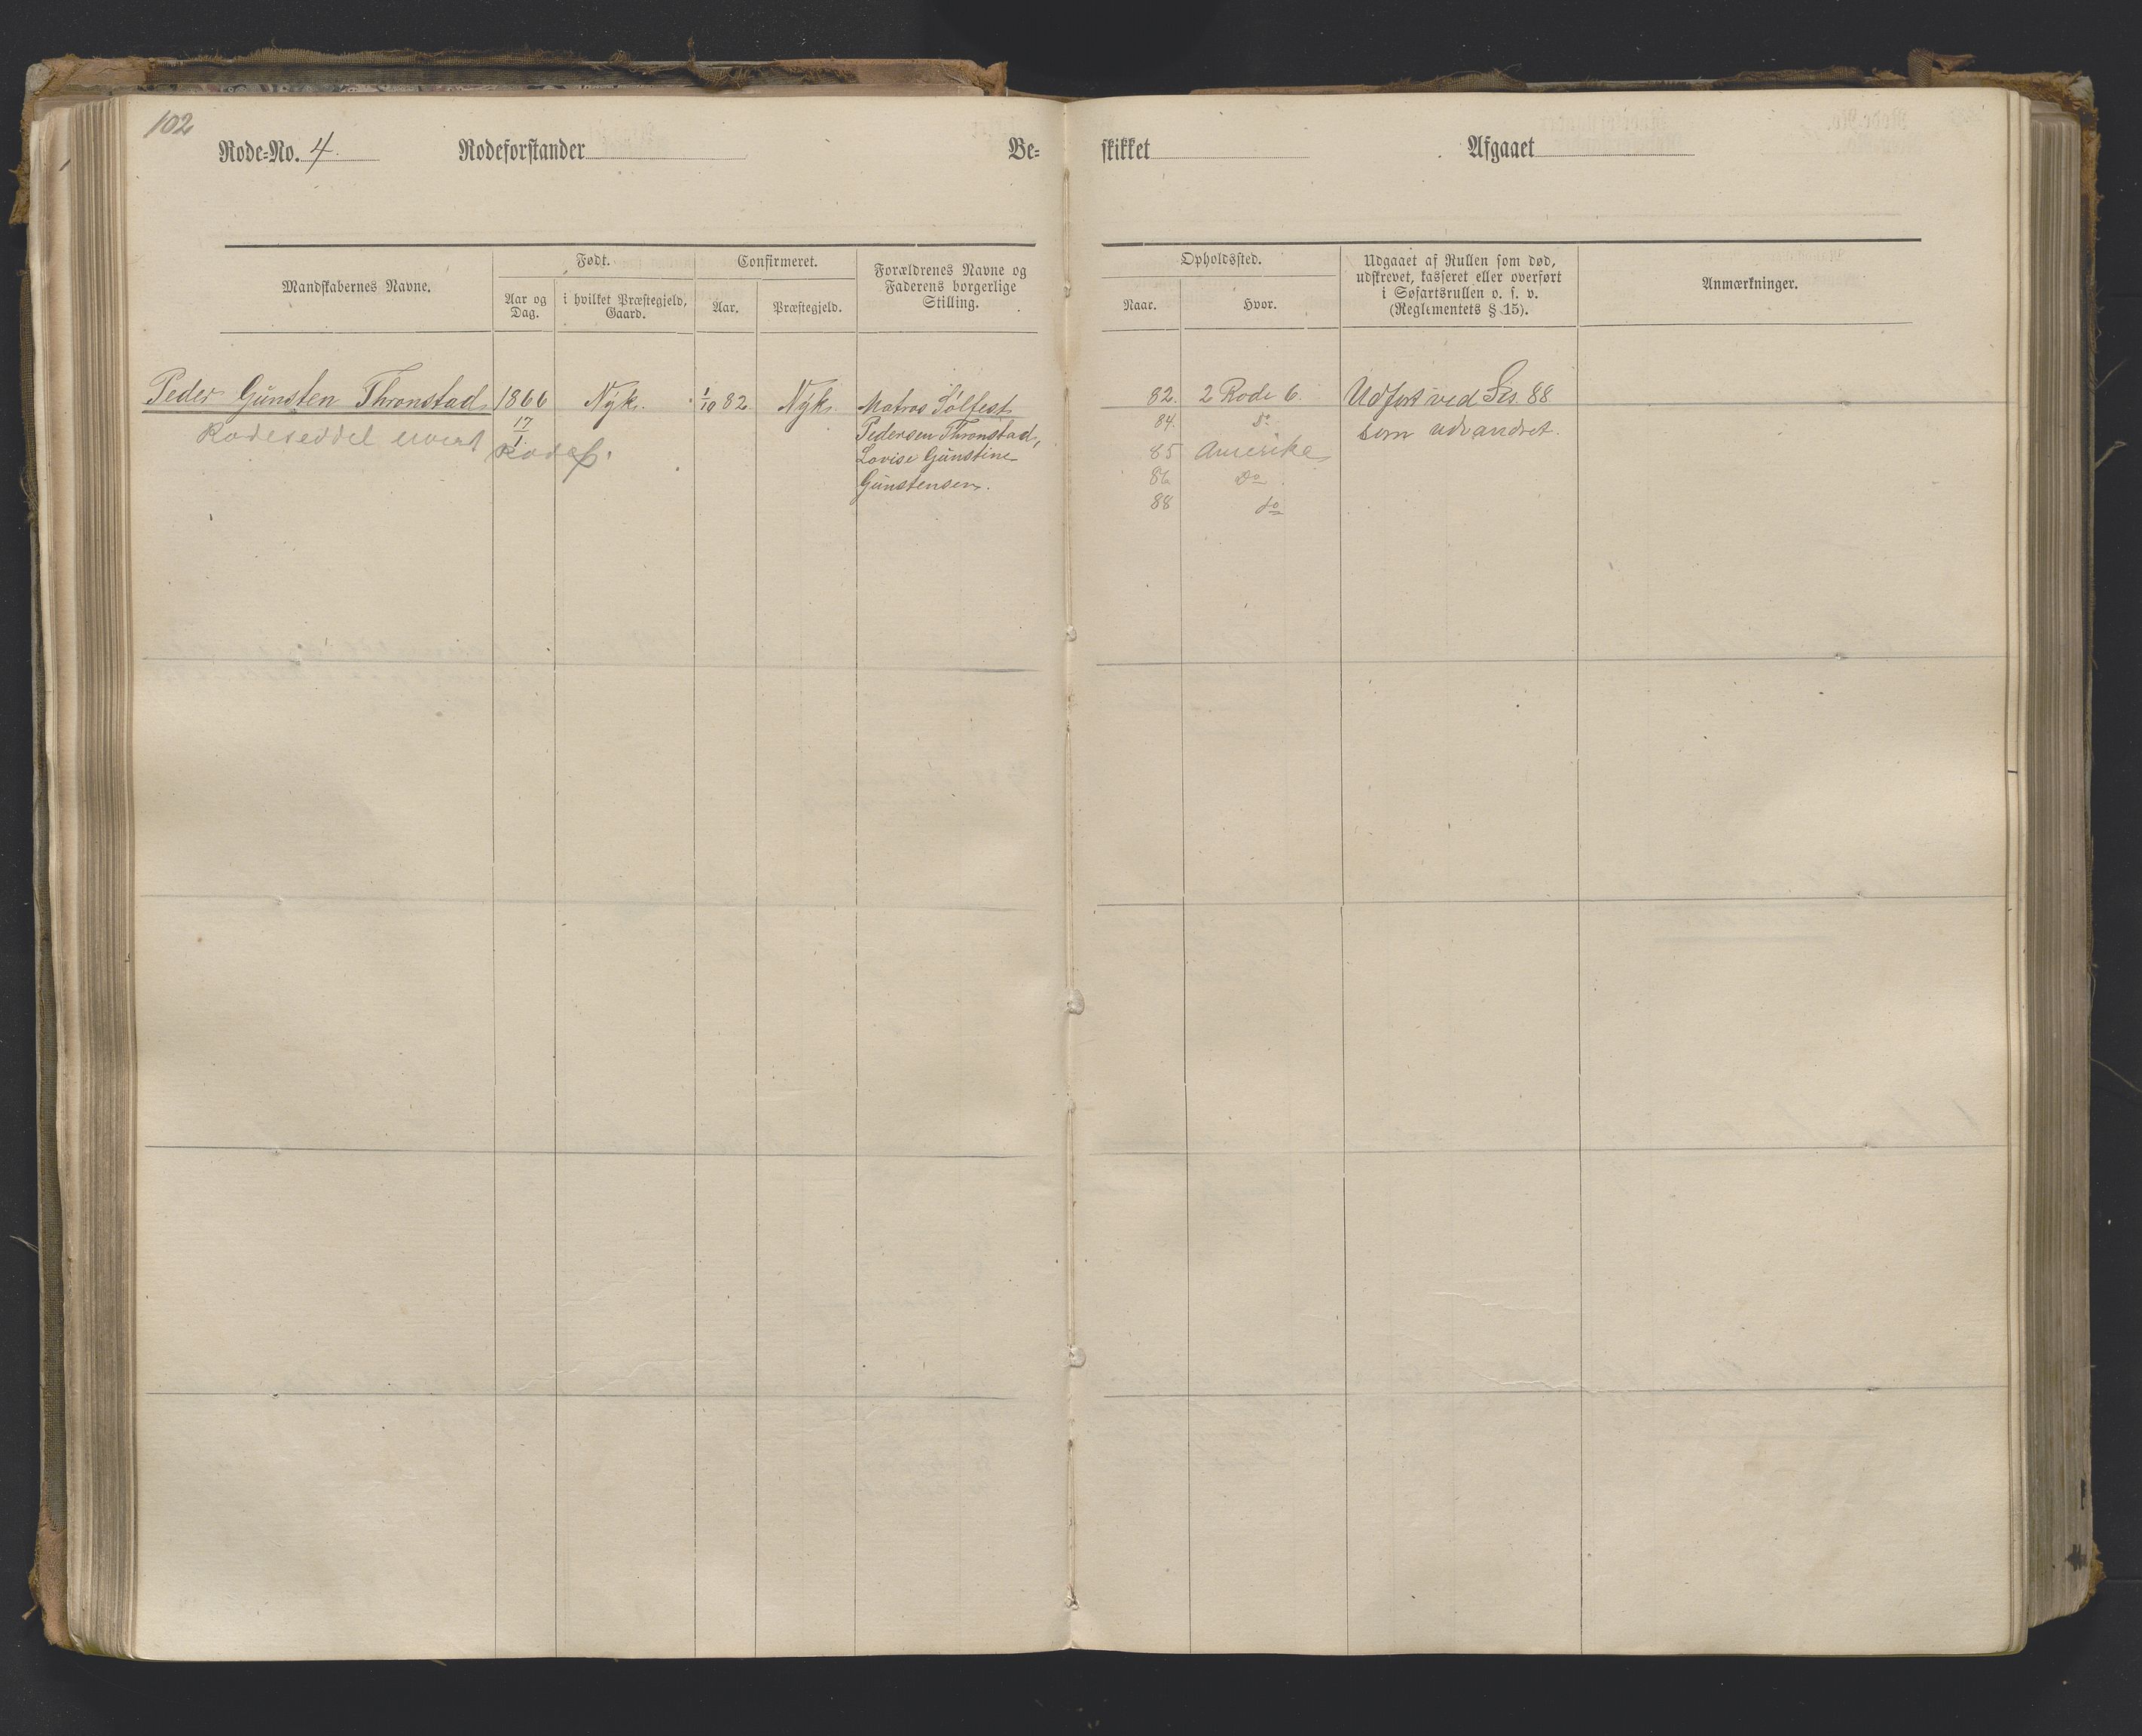 102
Rode=No. 4. Rodeforstander Be=
skikket Afgaaet
Mandskabernes Navne.
Født.
Aar og
Dag.
i hvilket Præstegjeld,
Gaard.
Confirmeret.
Aar.
Præstegjeld.
Forældrenes Navne og
Faderens borgerlige
Stilling.
Opholdssted.
Naar.
Hvor.
Udgaaet af Rullen som død,
udskrevet, kasseret eller overført
i Søfartsrullen o. s. v.
(Reglementets § 15).
Anmærkninger.
Peder Günsten Thronstad 1866 Nyk. 1/10 82. Nyk. Matros Sölfest
17/1
Pedersen Thronstad,
Lovise Günstine
Günstensen.
Rodeseddel Rode 6.
82. 2 Rode 6. Udført ved Ses. 88
84. do som udvandret.
85 Amerika
86 Do
88 do